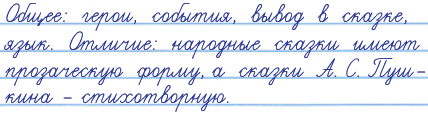 Общее: герои, события, вывод в сказке,
язык. Отличие: народные сказки имеют
прозаческую форму, а сказки А. С. Пуш-
кина - стихотворную.